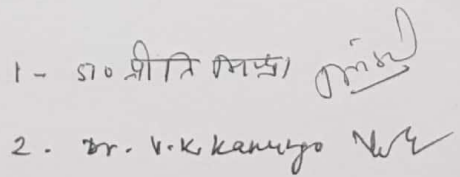 1 - डा० प्रीति मिश्रा
2. Dr. V.K. Kanungo